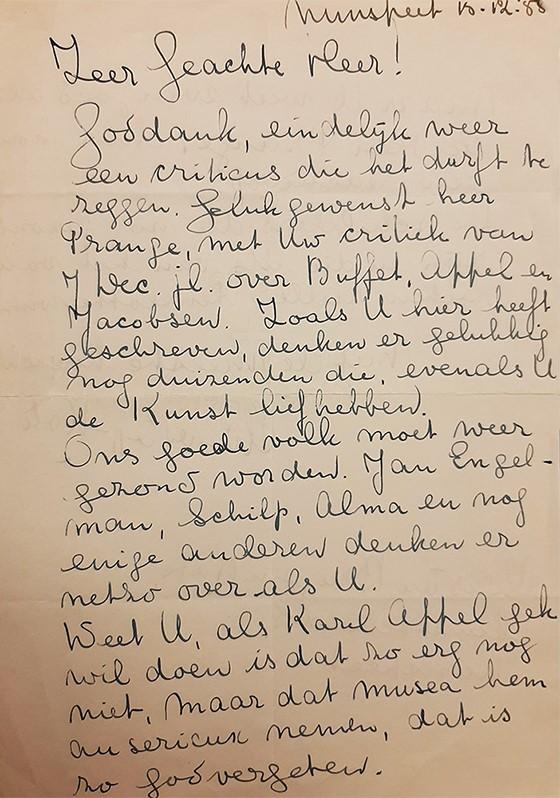 Nunspeet 18.12.58
Zeer Geachte Heer!
Goddank, eindelijk weer
een criticus die het durft te
zeggen. Gelukgewenst heer
Prange, met Uw critiek van
7 Dec. jl. over Buffet, Appel en
Jacobsen. Zoals U hier heeft
geschreven, denken er gelukkig
nog duizenden die, evenals U
de Kunst liefhebben.
Ons goede volk moet weer
gezond worden. Jan Engel-
man, Schilp, Alma en nog
enige anderen denken er
netzo over als U.
Weet U, als Karel Appel gek
wil doen is dat zo erg nog
niet, maar dat musea hem
au serieux nemen, dat is
zo godvergeten.